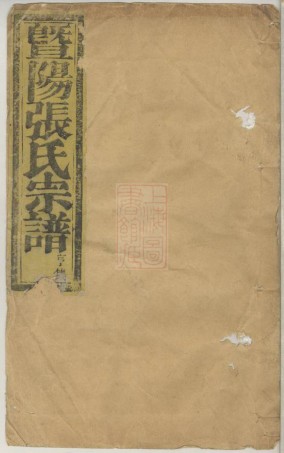 暨陽張氏宗譜
上海圖書館藏